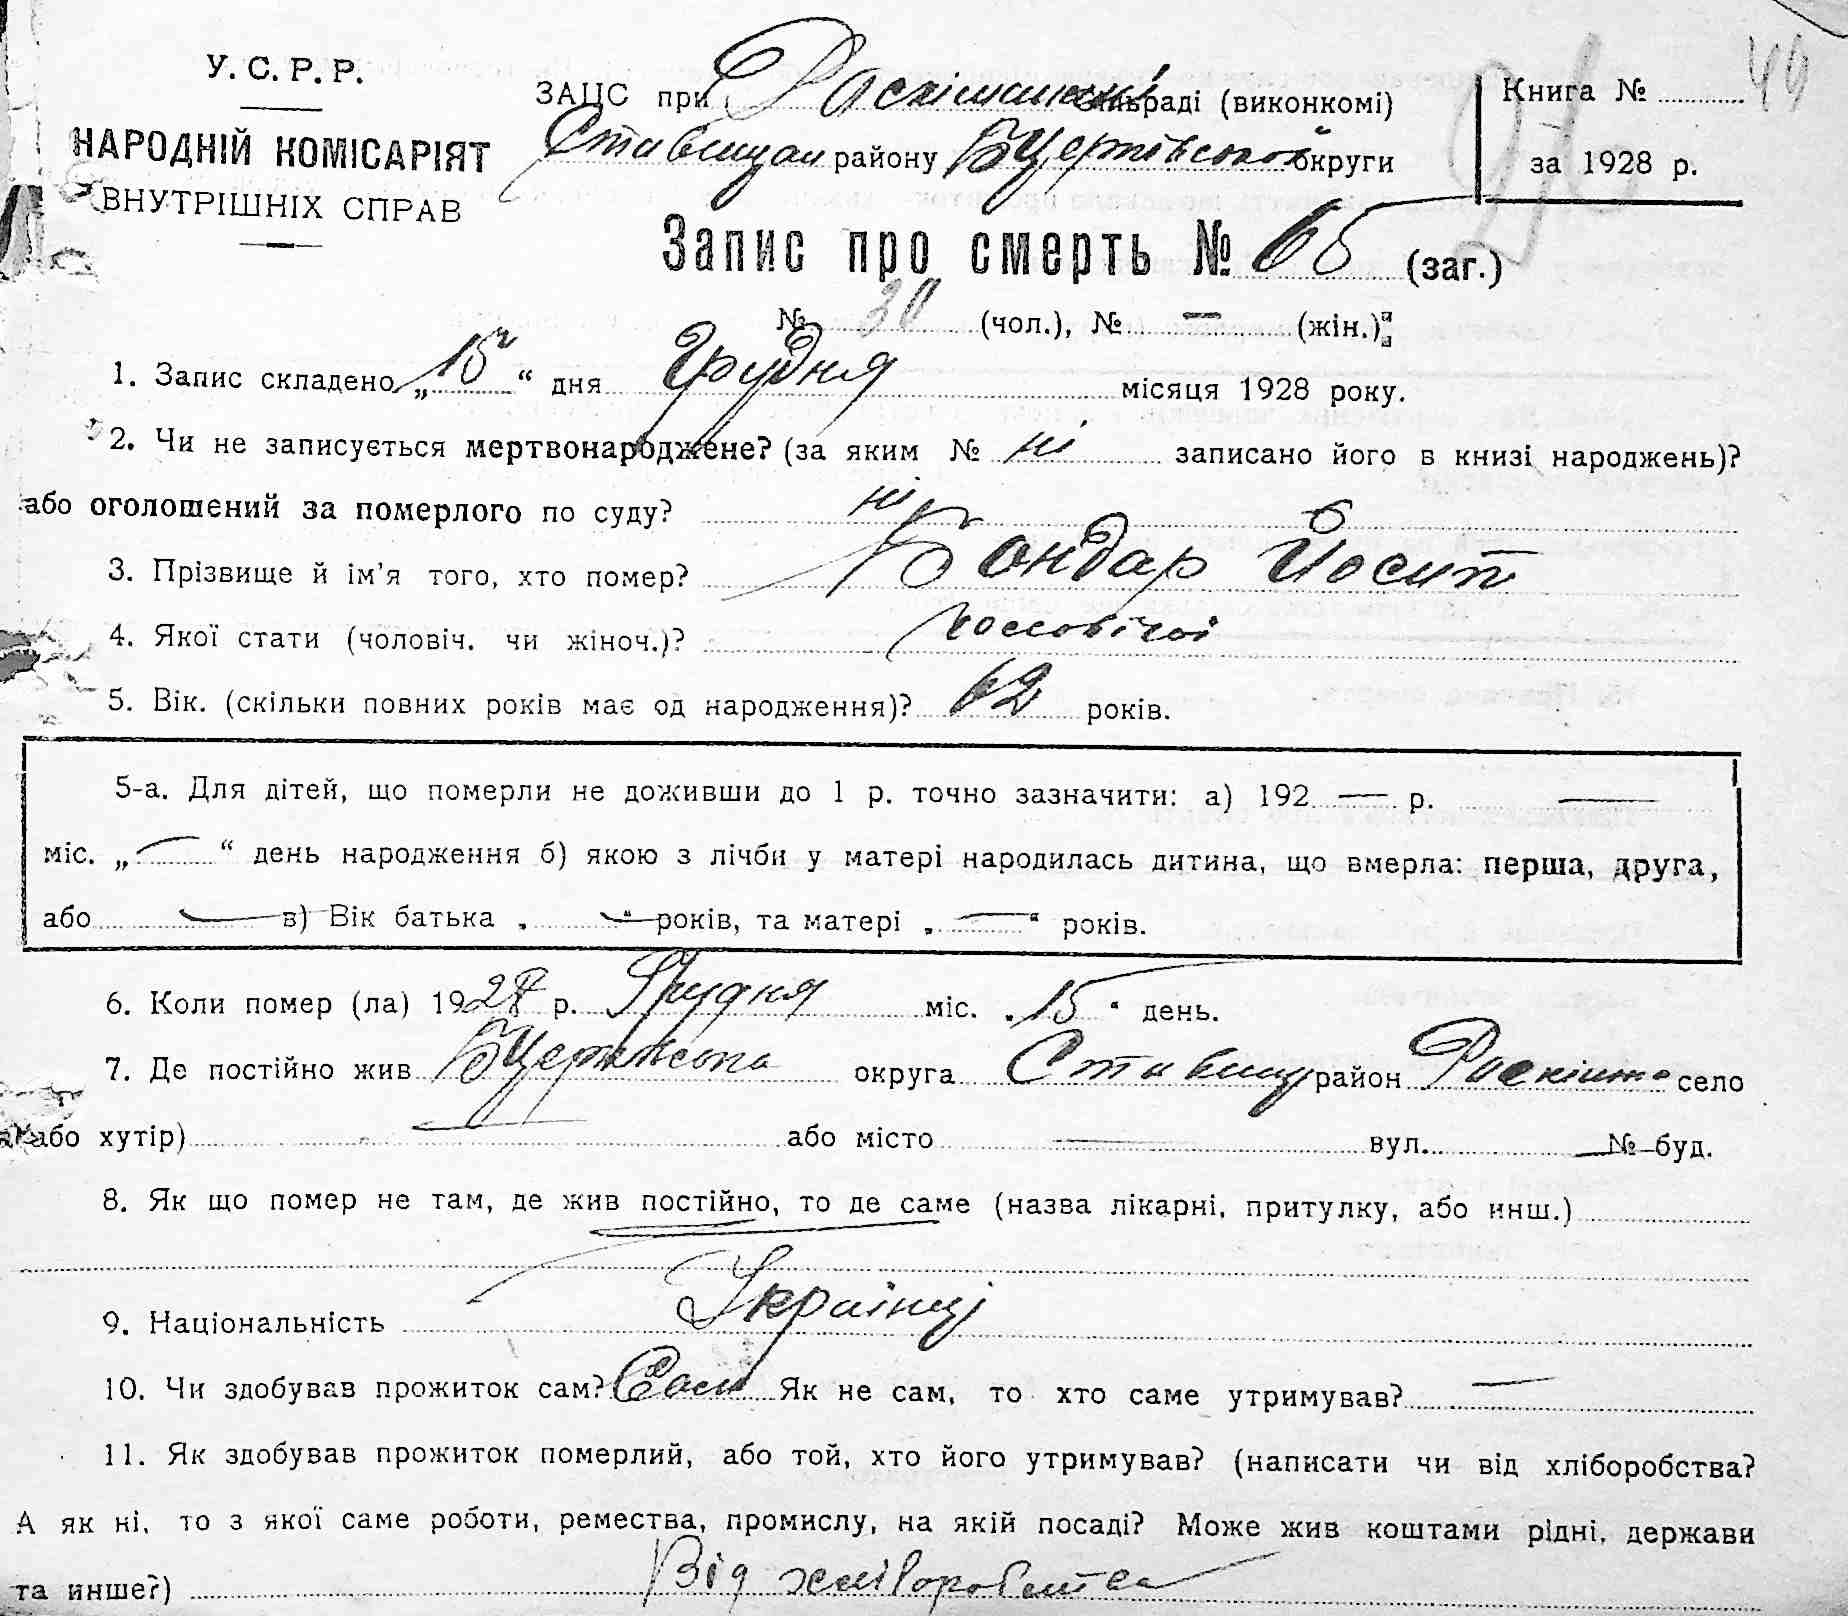 У. С. Р. Р.
НАРОДНІЙ КОМІСАРІЯТ
ВНУТРІШНІХ СПРАВ
ЗАЦС при сільраді (виконкомі)
Ставищан району БЦерківської округи
Книга № 49
за 1928 р.
Запис про смерть № 65 (заг.)
№ 30 (чол.), № — (жін.)
1. Запис складено „15“ дня Грудня місяця 1928 року.
2. Чи не записується мертвонароджене? (за яким № ні записано його в книзі народжень)?
або оголошений за померлого по суду? ні
3. Прізвище й ім'я того, хто помер? Бондар Йосип
4. Якої стати (чоловіч. чи жіноч.)? чоловічої
5. Вік. (скільки повних років має од народження)? 62 років.
5-а. Для дітей, що померли не доживши до 1 р. точно зазначити: а) 192 — р. —
міс. „—“ день народження б) якою з лічби у матері народилась дитина, що вмерла: перша, друга,
або — в) Вік батька „—“ років, та матері „—“ років.
6. Коли помер (ла) 1928 р. Грудня міс. „15“ день.
7. Де постійно жив БЦерківська округа Ставищ район Роскішна село
або хутір) — або місто — вул. — № — буд.
8. Як що помер не там, де жив постійно, то де саме (назва лікарні, притулку, або инш.)
9. Національність Українці
10. Чи здобував прожиток сам? Сам Як не сам, то хто саме утримував? —
11. Як здобував прожиток померлий, або той, хто його утримував? (написати чи від хліборобства?
А як ні, то з якої саме роботи, ремества, промислу, на якій посаді? Може жив коштами рідні, держави
та инше?) Від хліборобства